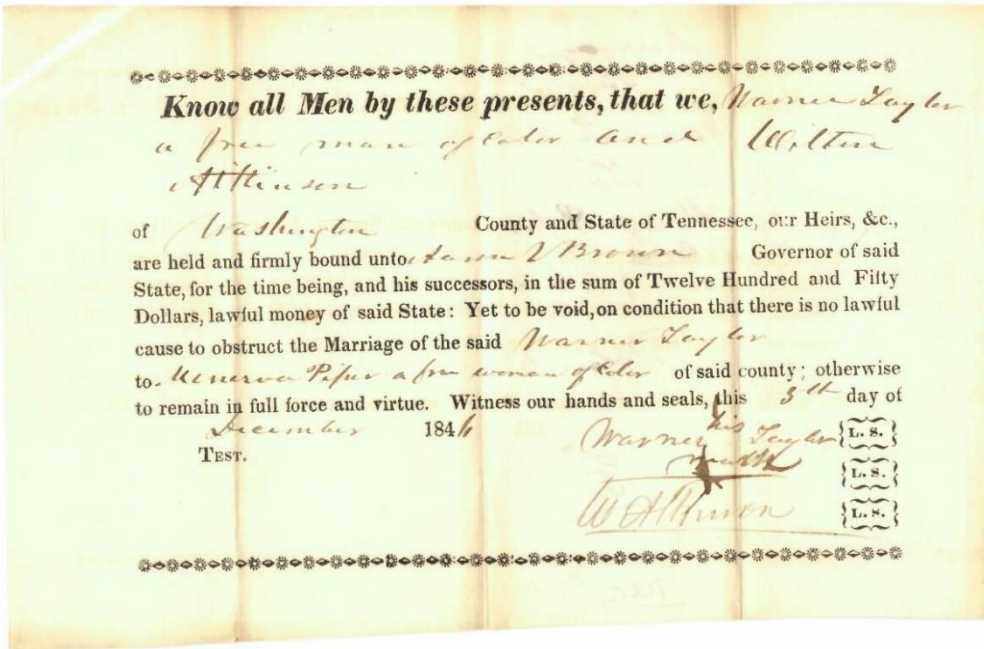 Know all Men by these presents, that we, Warner Taylor
a free man of Color and Wilton
Atkinson
of Washington County and State of Tennessee, our Heirs, &c.,
are held and firmly bound unto Aaron V Brown Governor of said
State, for the time being, and his successors, in the sum of Twelve Hundred and Fifty
Dollars, lawful money of said State: Yet to be void, on condition that there is no lawful
cause to obstruct the Marriage of the said Warner Taylor
to Menerva Piper a free woman of Color of said county; otherwise
to remain in full force and virtue. Witness our hands and seals, this 5th day of
December 1846
his
Warner Taylor L. S.
TEST.
mark L. S.
W Atkinson L. S.